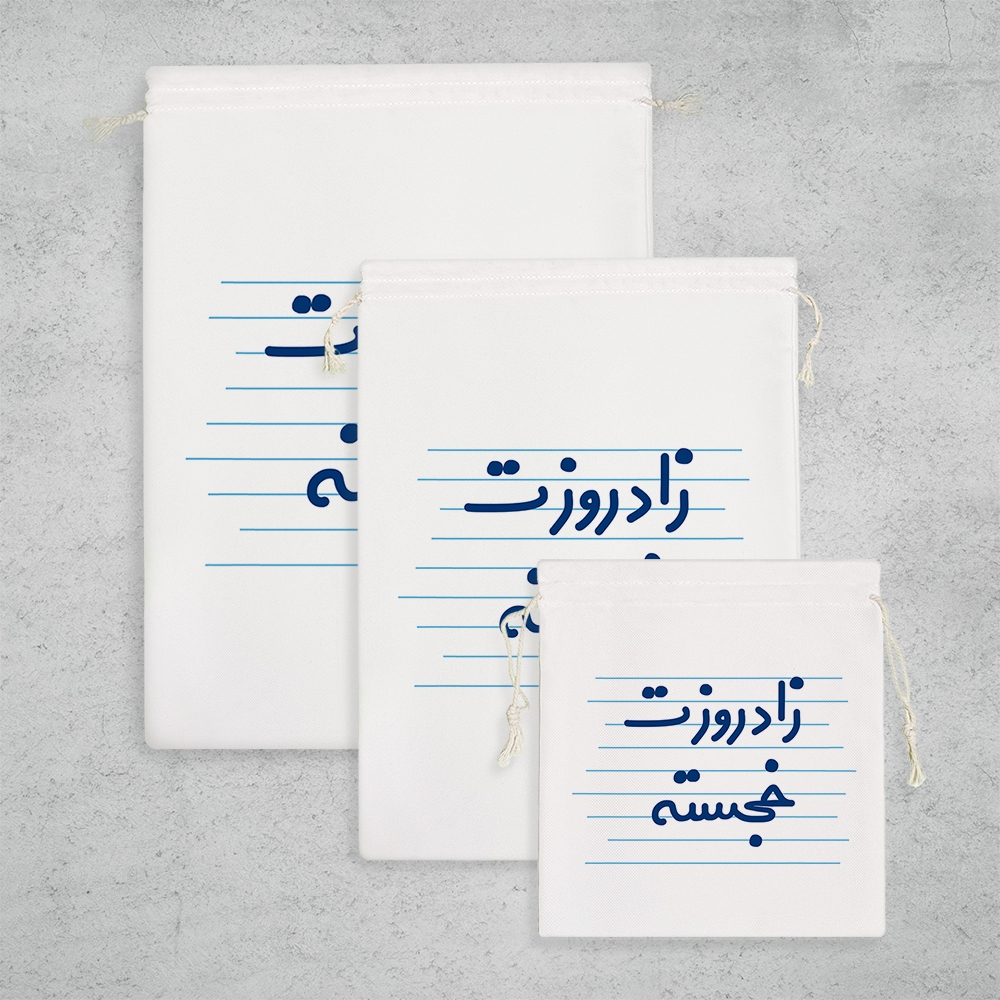 زادروزت
زادروزت
خجسته